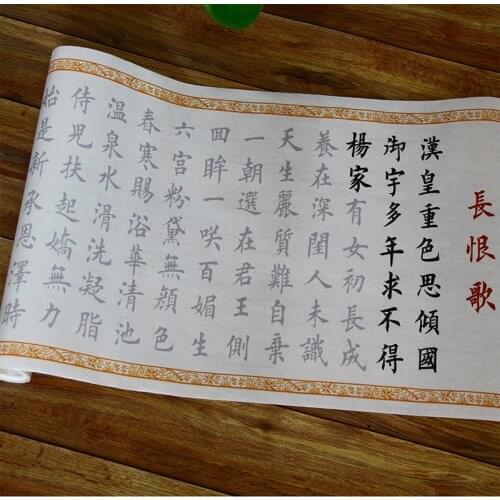 長恨歌
漢皇重色思傾國
御宇多年求不得
楊家有女初長成
養在深閨人未識
天生麗質難自棄
一朝選在君王側
回眸一咲百媚生
六宮粉黛無顏色
春寒賜浴華清池
溫泉水滑洗凝脂
侍児扶起嬌無力
始是新承恩澤時